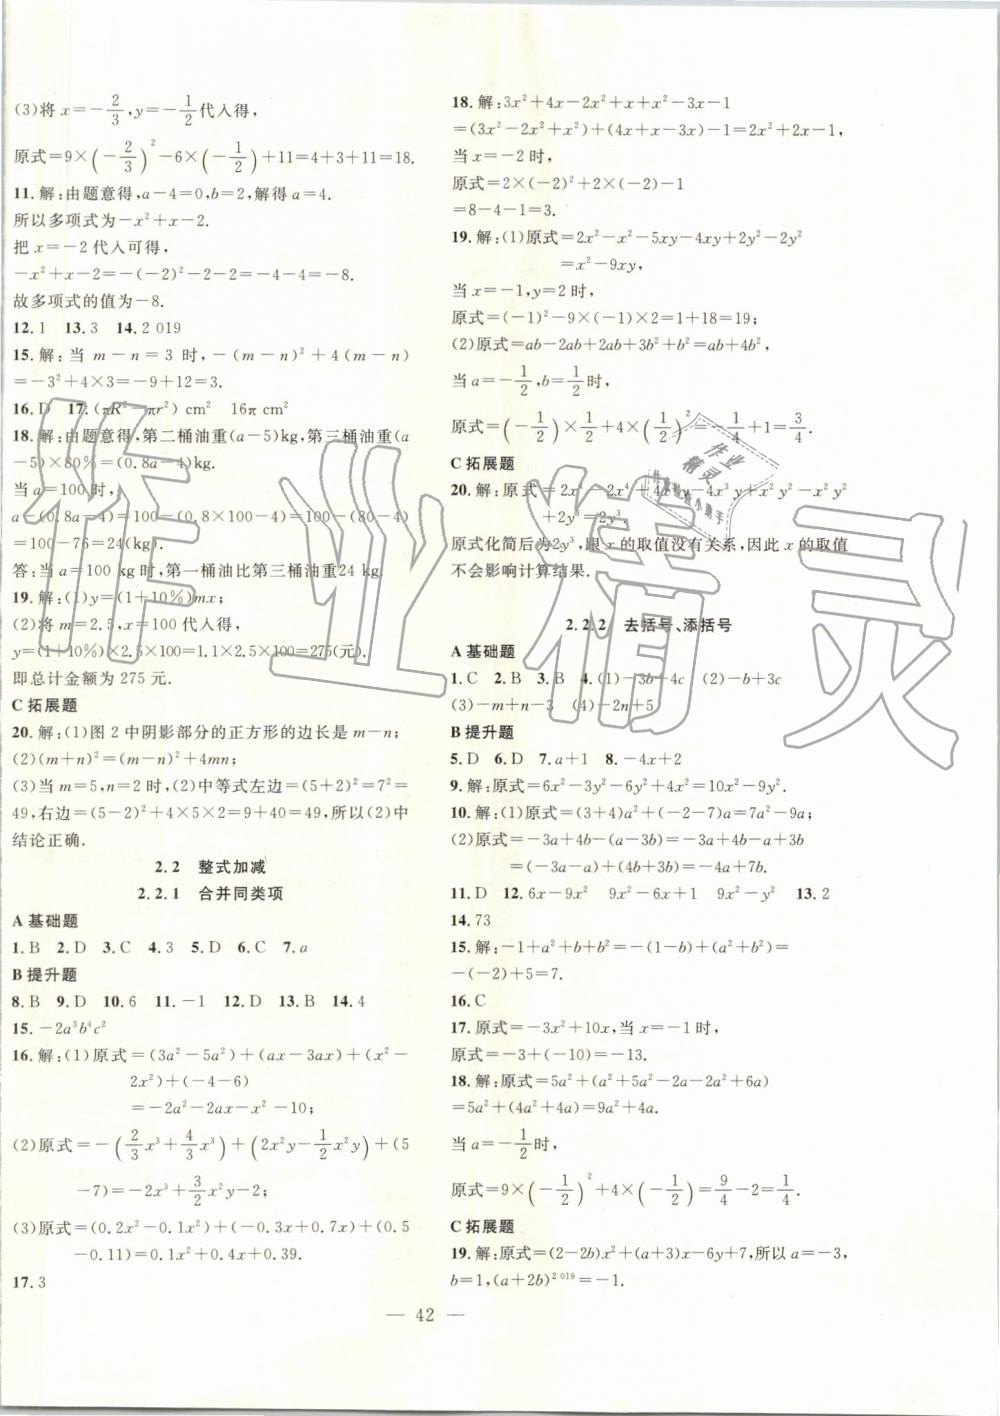 (3)将 x=-2/3,y=-1/2代入得,
原式=9×(-2/3)²-6×(-1/2)+11=4+3+11=18.
11.解:由题意得,a-4=0,b=2,解得 a=4.
所以多项式为-x²+x-2.
把 x=-2代入可得,
-x²+x-2=-(-2)²-2-2=-4-4=-8.
故多项式的值为-8.
12.1 13.3 14.2 019
15.解:当 m-n=3 时,-(m-n)²+4(m-n)
=-3²+4×3=-9+12=3.
16.D 17.(πR²-πr²) cm² 16π cm²
18.解:由题意得,第二桶油重(a-5)kg,第三桶油重(a
-5)×80%=(0.8a-4)kg.
当 a=100时,
a-(0.8a-4)=100-(0.8×100-4)=100-(80-4)
=100-76=24(kg).
答:当 a=100 kg时,第一桶油比第三桶油重24 kg.
19.解:(1)y=(1+10%)mx;
(2)将 m=2.5,x=100代入得,
y=(1+10%)×2.5×100=1.1×2.5×100=275(元).
即总计金额为 275 元.
C拓展题
20.解:(1)图 2 中阴影部分的正方形的边长是 m-n;
(2)(m+n)²=(m-n)²+4mn;
(3)当 m=5,n=2 时,(2)中等式左边=(5+2)²=7²=
49,右边=(5-2)²+4×5×2=9+40=49,所以(2)中
结论正确.
2.2 整式加减
2.2.1 合并同类项
A基础题
1.B 2.D 3.C 4.3 5.D 6.C 7.a
B提升题
8.B 9.D 10.6 11.-1 12.D 13.B 14.4
15.-2a³b⁴c²
16.解:(1)原式=(3a²-5a²)+(ax-3ax)+(x²-
2x²)+(-4-6)
=-2a²-2ax-x²-10;
(2)原式=-(2/3x³+4/3x³)+(2x²y-1/2x²y)+(5
-7)=-2x³+3/2x²y-2;
(3)原式=(0.2x²-0.1x²)+(-0.3x+0.7x)+(0.5
-0.11)=0.1x²+0.4x+0.39.
17.3
18.解:3x²+4x-2x²+x+x²-3x-1
=(3x²-2x²+x²)+(4x+x-3x)-1=2x²+2x-1,
当 x=-2 时,
原式=2×(-2)²+2×(-2)-1
=8-4-1=3.
19.解:(1)原式=2x²-x²-5xy-4xy+2y²-2y²
=x²-9xy,
当 x=-1,y=2 时,
原式=(-1)²-9×(-1)×2=1+18=19;
(2)原式=ab-2ab+2ab+3b²+b²=ab+4b²,
当 a=-1/2,b=1/2时,
原式=(-1/2)×1/2+4×(1/2)²=-1/4+1=3/4.
C拓展题
20.解:原式=2x⁴-2x⁴+4x³y-4x³y+x²y-x²y
+2y³=2y³.
原式化简后为2y³,跟 x 的取值没有关系,因此 x 的取值
不会影响计算结果.
2.2.2 去括号、添括号
A基础题
1.C 2.B 3.B 4.(1)-3b+4c (2)-b+3c
(3)-m+n-3 (4)-2n+5
B提升题
5.D 6.D 7.a+1 8.-4x+2
9.解:原式=6x²-3y²-6y²+4x²=10x²-9y².
10.解:(1)原式=(3+4)a²+(-2-7)a=7a²-9a;
(2)原式=-a+4b-(a-3b)=-3a+4b-a+3b
=(-3a-a)+(4b+3b)=-4a+7b.
11.D 12.6x-9x² 9x²-6x+1 9x²-y² 13.2
14.73
15.解:-1+a²+b+b²=-(1-b)+(a²+b²)=
-(-2)+5=7.
16.C
17.原式=-3x²+10x,当 x=-1时,
原式=-3+(-10)=-13.
18.解:原式=5a²+(a²+5a²-2a-2a²+6a)
=5a²+(4a²+4a)=9a²+4a.
当 a=-1/2时,
原式=9×(-1/2)²+4×(-1/2)=9/4-2=1/4.
C拓展题
19.解:原式=(2-2b)x²+(a+3)x-6y+7,所以 a=-3,
b=1,(a+2b)²⁰¹⁹=-1.
— 42 —
作业精灵
作业
精灵